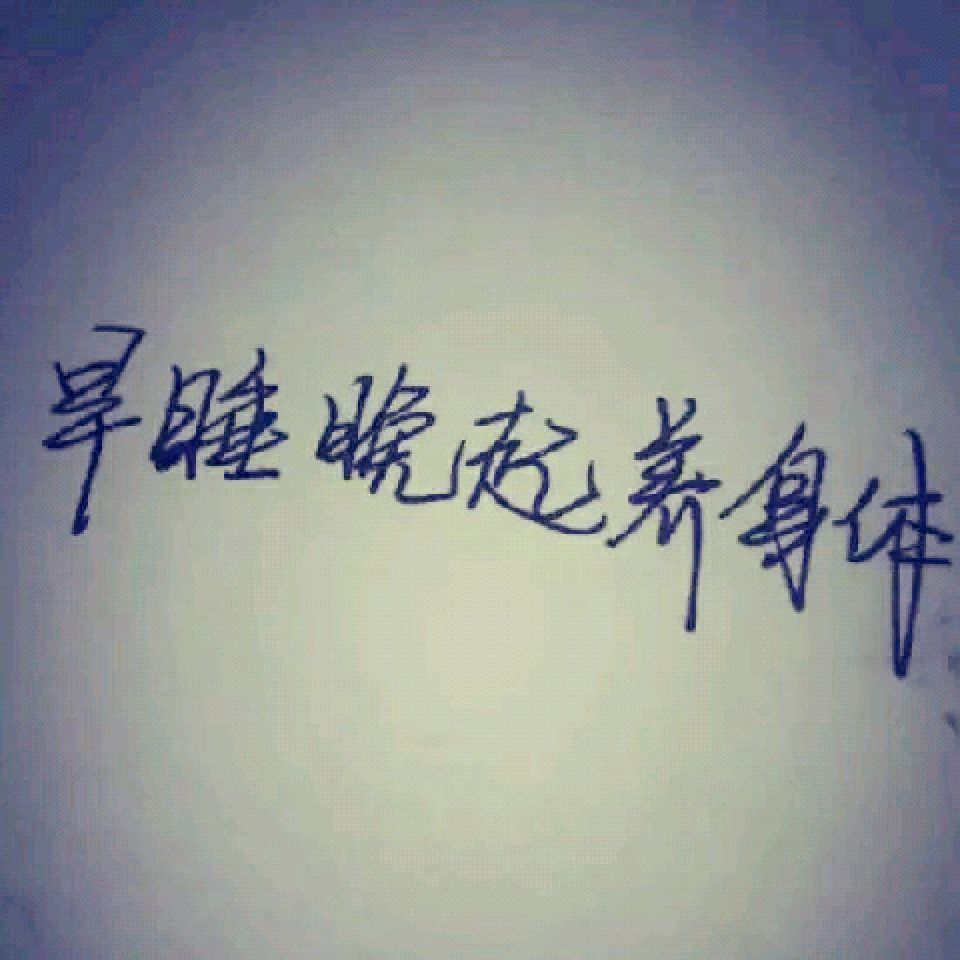 早睡晚起养身体